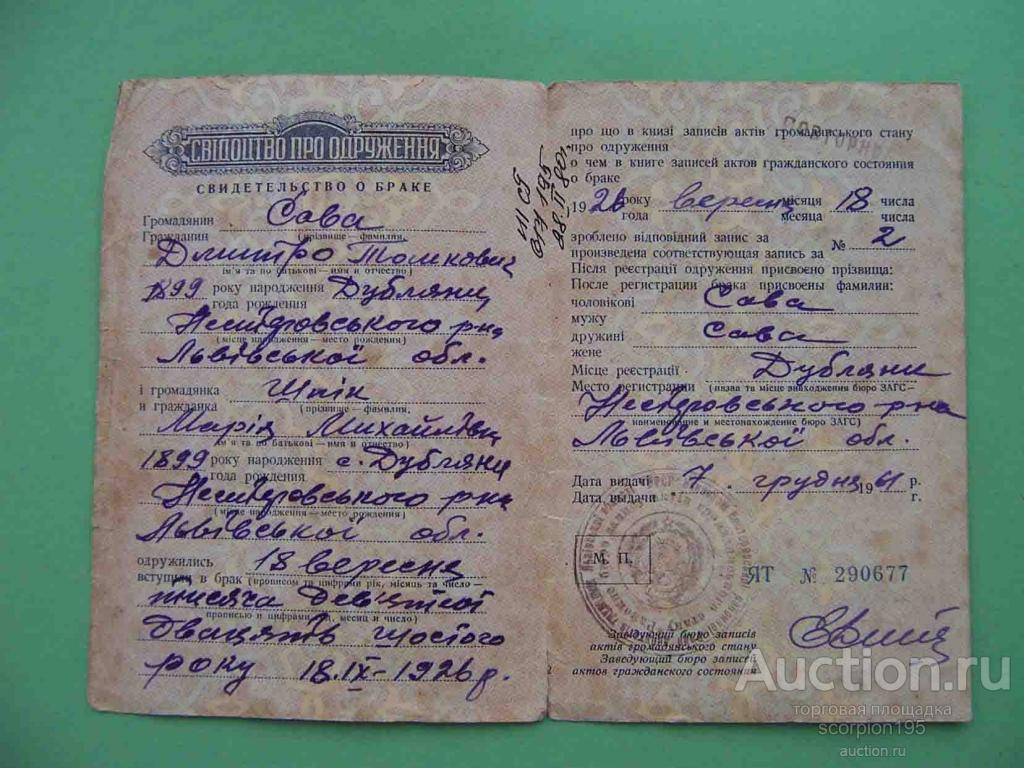 СВІДОЦТВО ПРО ОДРУЖЕННЯ
СВИДЕТЕЛЬСТВО О БРАКЕ
Громадянин Сава
Гражданин (прізвище – фамилия,
Дмитро Томкович
ім'я та по батькові – имя и отчество)
1899 року народження Дубляни
года рождения
Нестеровського р-на
(місце народження – место рождения)
Львівської обл.
і громадянка Шпік
и гражданка (прізвище – фамилия,
Марія Михайлівна
ім'я та по батькові – имя и отчество)
1899 року народження с. Дубляни
года рождения
Нестеровського р-на
(місце народження – место рождения)
Львівської обл.
одружились 18 вересня
вступили в брак (прописом та цифрами рік, місяць та число –
тисяча дев'ятсот
прописью и цифрами год, месяц и число)
двадцять шостого
року 18.IX-1926 р.
про що в книзі записів актів громадянського стану
про одруження
о чем в книге записей актов гражданского состояния
о браке
ПОВТОРНЕ
1926 року вересня місяця 18 числа
года месяца числа
зроблено відповідний запис за № 2
произведена соответствующая запись за
Після реєстрації одруження присвоєно прізвища:
После регистрации брака присвоены фамилии:
чоловікові Сава
мужу
дружині Сава
жене
Місце реєстрації Дубляни
Место регистрации (назва та місце знаходження бюро ЗАГС –
Нестеровського р-на
наименование и местонахождение бюро ЗАГС)
Львівської обл.
Дата видачі „ 7 „ грудня 1961 р.
Дата выдачи г.
М. П.
ЯТ № 290677
Завідуючий бюро записів
актів громадянського стану
Заведующий бюро записей
актов гражданского состояния
Auction.ru
торговая площадка
scorpion195
auction.ru